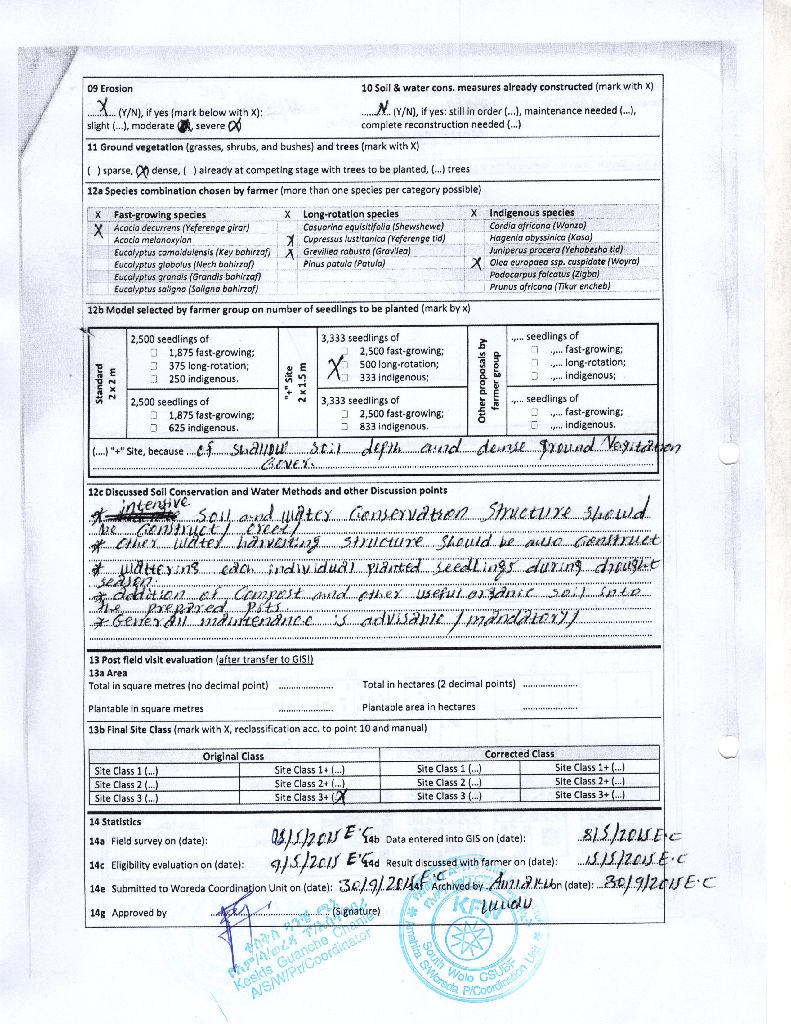 09 Erosion
10 Soil & water cons. measures already constructed (mark with X)
...X... (Y/N), if yes (mark below with X):
......N.. (Y/N), if yes: still in order (...), maintenance needed (...),
slight (...), moderate (...), severe (X)
complete reconstruction needed (...)
11 Ground vegetation (grasses, shrubs, and bushes) and trees (mark with X)
( ) sparse, (X) dense, ( ) already at competing stage with trees to be planted, (...) trees
12a Species combination chosen by farmer (more than one species per category possible)
X Fast-growing species X Long-rotation species X Indigenous species
X Acacia decurrens (Yeferenge girar) Casuarina equisitifolia (Shewshewe) Cordia africana (Wanza)
Acacia melanoxylan X Cupressus lustitanica (Yeferenge tid) Hagenia abyssinica (Koso)
Eucalyptus camaldulensis (Key bahirzaf) X Grevillea robusta (Gravilea) Juniperus procera (Yehabesha tid)
Eucalyptus globolus (Nech bahirzaf) Pinus patula (Patula) X Olea europaea ssp. cuspidate (Woyra)
Eucalyptus grandis (Grandis bahirzaf) Podocarpus falcatus (Zigba)
Eucalyptus saligna (Saligna bahirzaf) Prunus africana (Tikur encheb)
12b Model selected by farmer group on number of seedlings to be planted (mark by x)
Standard
2 x 2 m
2,500 seedlings of
1,875 fast-growing;
375 long-rotation;
250 indigenous.
2,500 seedlings of
1,875 fast-growing;
625 indigenous.
"+" Site
2 x 1.5 m
3,333 seedlings of
2,500 fast-growing;
X 500 long-rotation;
333 indigenous;
3,333 seedlings of
2,500 fast-growing;
833 indigenous.
Other proposals by
farmer group
.,... seedlings of
.,... fast-growing;
.,... long-rotation;
.,... indigenous;
.,... seedlings of
.,... fast-growing;
.,... indigenous.
(....) "+" Site, because ... of shallow soil depth and dense ground Vegitation
Cover.
12c Discussed Soil Conservation and Water Methods and other Discussion points
* intensive Soil and water Conservation Structure should
be Construct / erect /
* other water harvesting structure should be also construct
* wattering each individual planted seedlings during drought
season.
* addition of Compost and other useful organic soil into
the prepared Pits
* Generall maintenance is advisable / mandatory /
13 Post field visit evaluation (after transfer to GIS!)
13a Area
Total in square metres (no decimal point) .................... Total in hectares (2 decimal points) ....................
Plantable in square metres .................... Plantable area in hectares ....................
13b Final Site Class (mark with X, reclassification acc. to point 10 and manual)
Original Class Corrected Class
Site Class 1 (...) Site Class 1+ (...) Site Class 1 (...) Site Class 1+ (...)
Site Class 2 (...) Site Class 2+ (...) Site Class 2 (...) Site Class 2+ (...)
Site Class 3 (...) Site Class 3+ (X) Site Class 3 (...) Site Class 3+ (...)
14 Statistics
14a Field survey on (date): 08/5/2015 E.C 14b Data entered into GIS on (date): 8/5/2015 E.C
14c Eligibility evaluation on (date): 9/5/2015 E.C 14d Result discussed with farmer on (date): 15/5/2015 E.C
14e Submitted to Woreda Coordination Unit on (date): 30/9/2015 E.C 14f Archived by on (date): 30/9/2015 E.C
14g Approved by (Signature)
Keskis Guanche Chane
A/S/W/Pr/Coordinator
KFW
South Wolo CSUBF
Amahra S/Woreda P/Coordination Unit